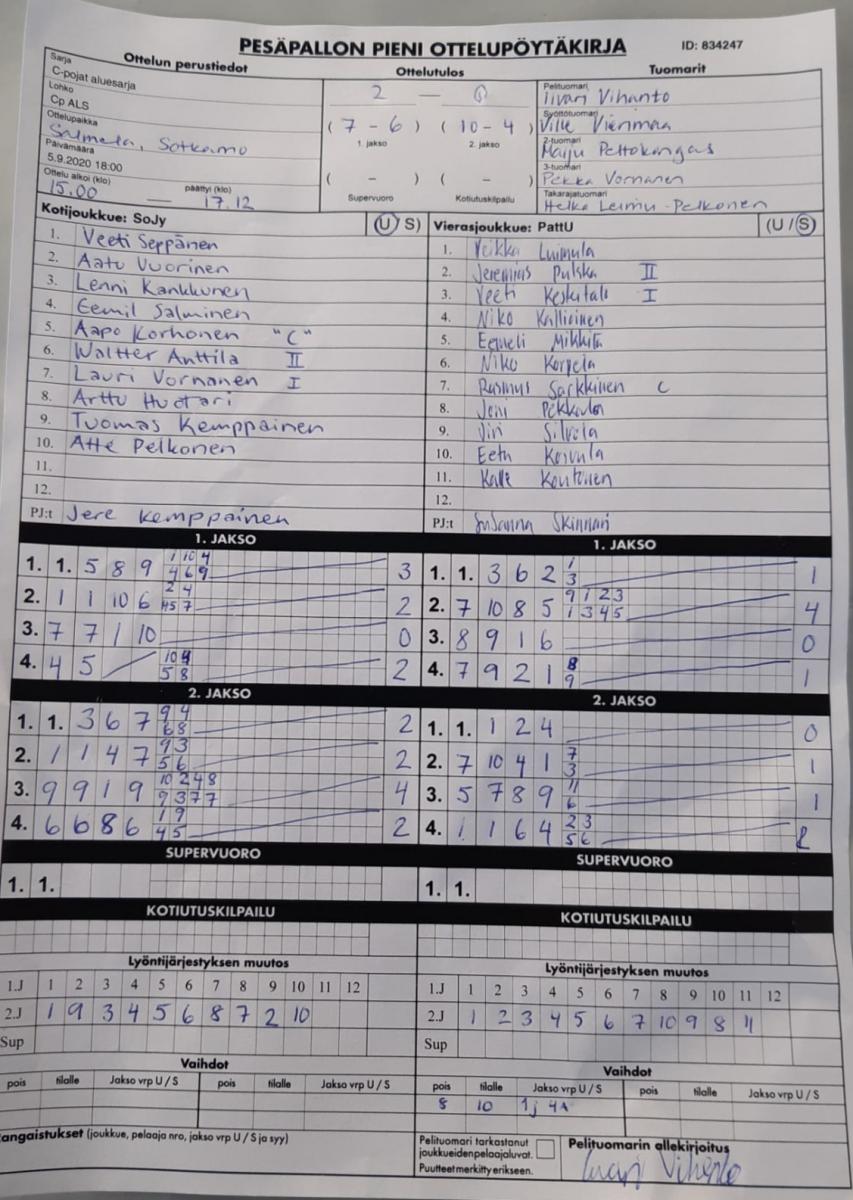 PESÄPALLON PIENI OTTELUPÖYTÄKIRJA ID: 834247
Ottelun perustiedot Ottelutulos Tuomarit
Sarja
C-pojat aluesarja
Lohko
Cp ALS
Ottelupaikka
Salmela, Sotkamo
Päivämäärä
5.9.2020 18:00
Ottelu alkoi (klo) päättyi (klo)
15.00 — 17.12
2 — 0
( 7 - 6 ) ( 10 - 4 )
1. jakso 2. jakso
( - ) ( - )
Supervuoro Kotiutuskilpailu
Pelituomari
Iivari Vihanto
Syöttötuomari
Ville Vienmaa
2-tuomari
Maiju Peltokangas
3-tuomari
Pekka Vornanen
Takarajatuomari
Helka Leimu-Pelkonen
Kotijoukkue: SoJy (U / S)
1. Veeti Seppänen
2. Aatu Vuorinen
3. Lenni Kankkunen
4. Eemil Salminen
5. Aapo Korhonen "C"
6. Waltter Anttila II
7. Lauri Vornanen I
8. Arttu Huotari
9. Tuomas Kemppainen
10. Atte Pelkonen
11.
12.
PJ:t Jere Kemppainen
Vierasjoukkue: PattU (U / S)
1. Veikka Luimula
2. Jeremias Pulska II
3. Veeti Keskitalo I
4. Niko Kallioinen
5. Eemeli Mikkila
6. Niko Korpela
7. Rasmus Sarkkinen C
8. Joni
9. Jiri Silvola
10. Eetu Koivula
11. Kalle Kontinen
12.
PJ:t Susanna Skinnari
1. JAKSO
1. 1. 5 8 9 1 10 4 3
4 6 9
2. 1 1 10 6 2 4 2
45 7
3. 7 7 1 10 0
4. 4 5 10 4 2
5 8
2. JAKSO
1. 1. 3 6 7 9 4 2
6 8
2. 1 1 4 7 9 3 2
5 6
3. 9 9 1 9 10 2 4 8 4
9 3 7 7
4. 6 6 8 6 1 9 2
4 5
SUPERVUORO
1. 1.
KOTIUTUSKILPAILU
1. JAKSO
1. 1. 3 6 2 1 1
3
2. 7 10 8 5 9 1 2 3 4
1 3 4 5
3. 8 9 1 6 0
4. 7 9 2 1 8 1
9
2. JAKSO
1. 1. 1 2 4 0
2. 7 10 4 1 7 1
3
3. 5 7 8 9 11 1
6
4. 1 1 6 4 2 3 2
5 6
SUPERVUORO
1. 1.
KOTIUTUSKILPAILU
Lyöntijärjestyksen muutos
1.J 1 2 3 4 5 6 7 8 9 10 11 12
2.J 1 9 3 4 5 6 8 7 2 10
Sup
Vaihdot
pois tilalle Jakso vrp U / S pois tilalle Jakso vrp U / S
Lyöntijärjestyksen muutos
1.J 1 2 3 4 5 6 7 8 9 10 11 12
2.J 1 2 3 4 5 6 7 10 9 8 11
Sup
Vaihdot
pois tilalle Jakso vrp U / S pois tilalle Jakso vrp U / S
8 10 1j 4A
angaistukset (joukkue, pelaaja nro, jakso vrp U / S ja syy)
Pelituomari tarkastanut
joukkueidenpelaajaluvat.
Puutteet merkitty erikseen.
Pelituomarin allekirjoitus
Iivari Vihanto